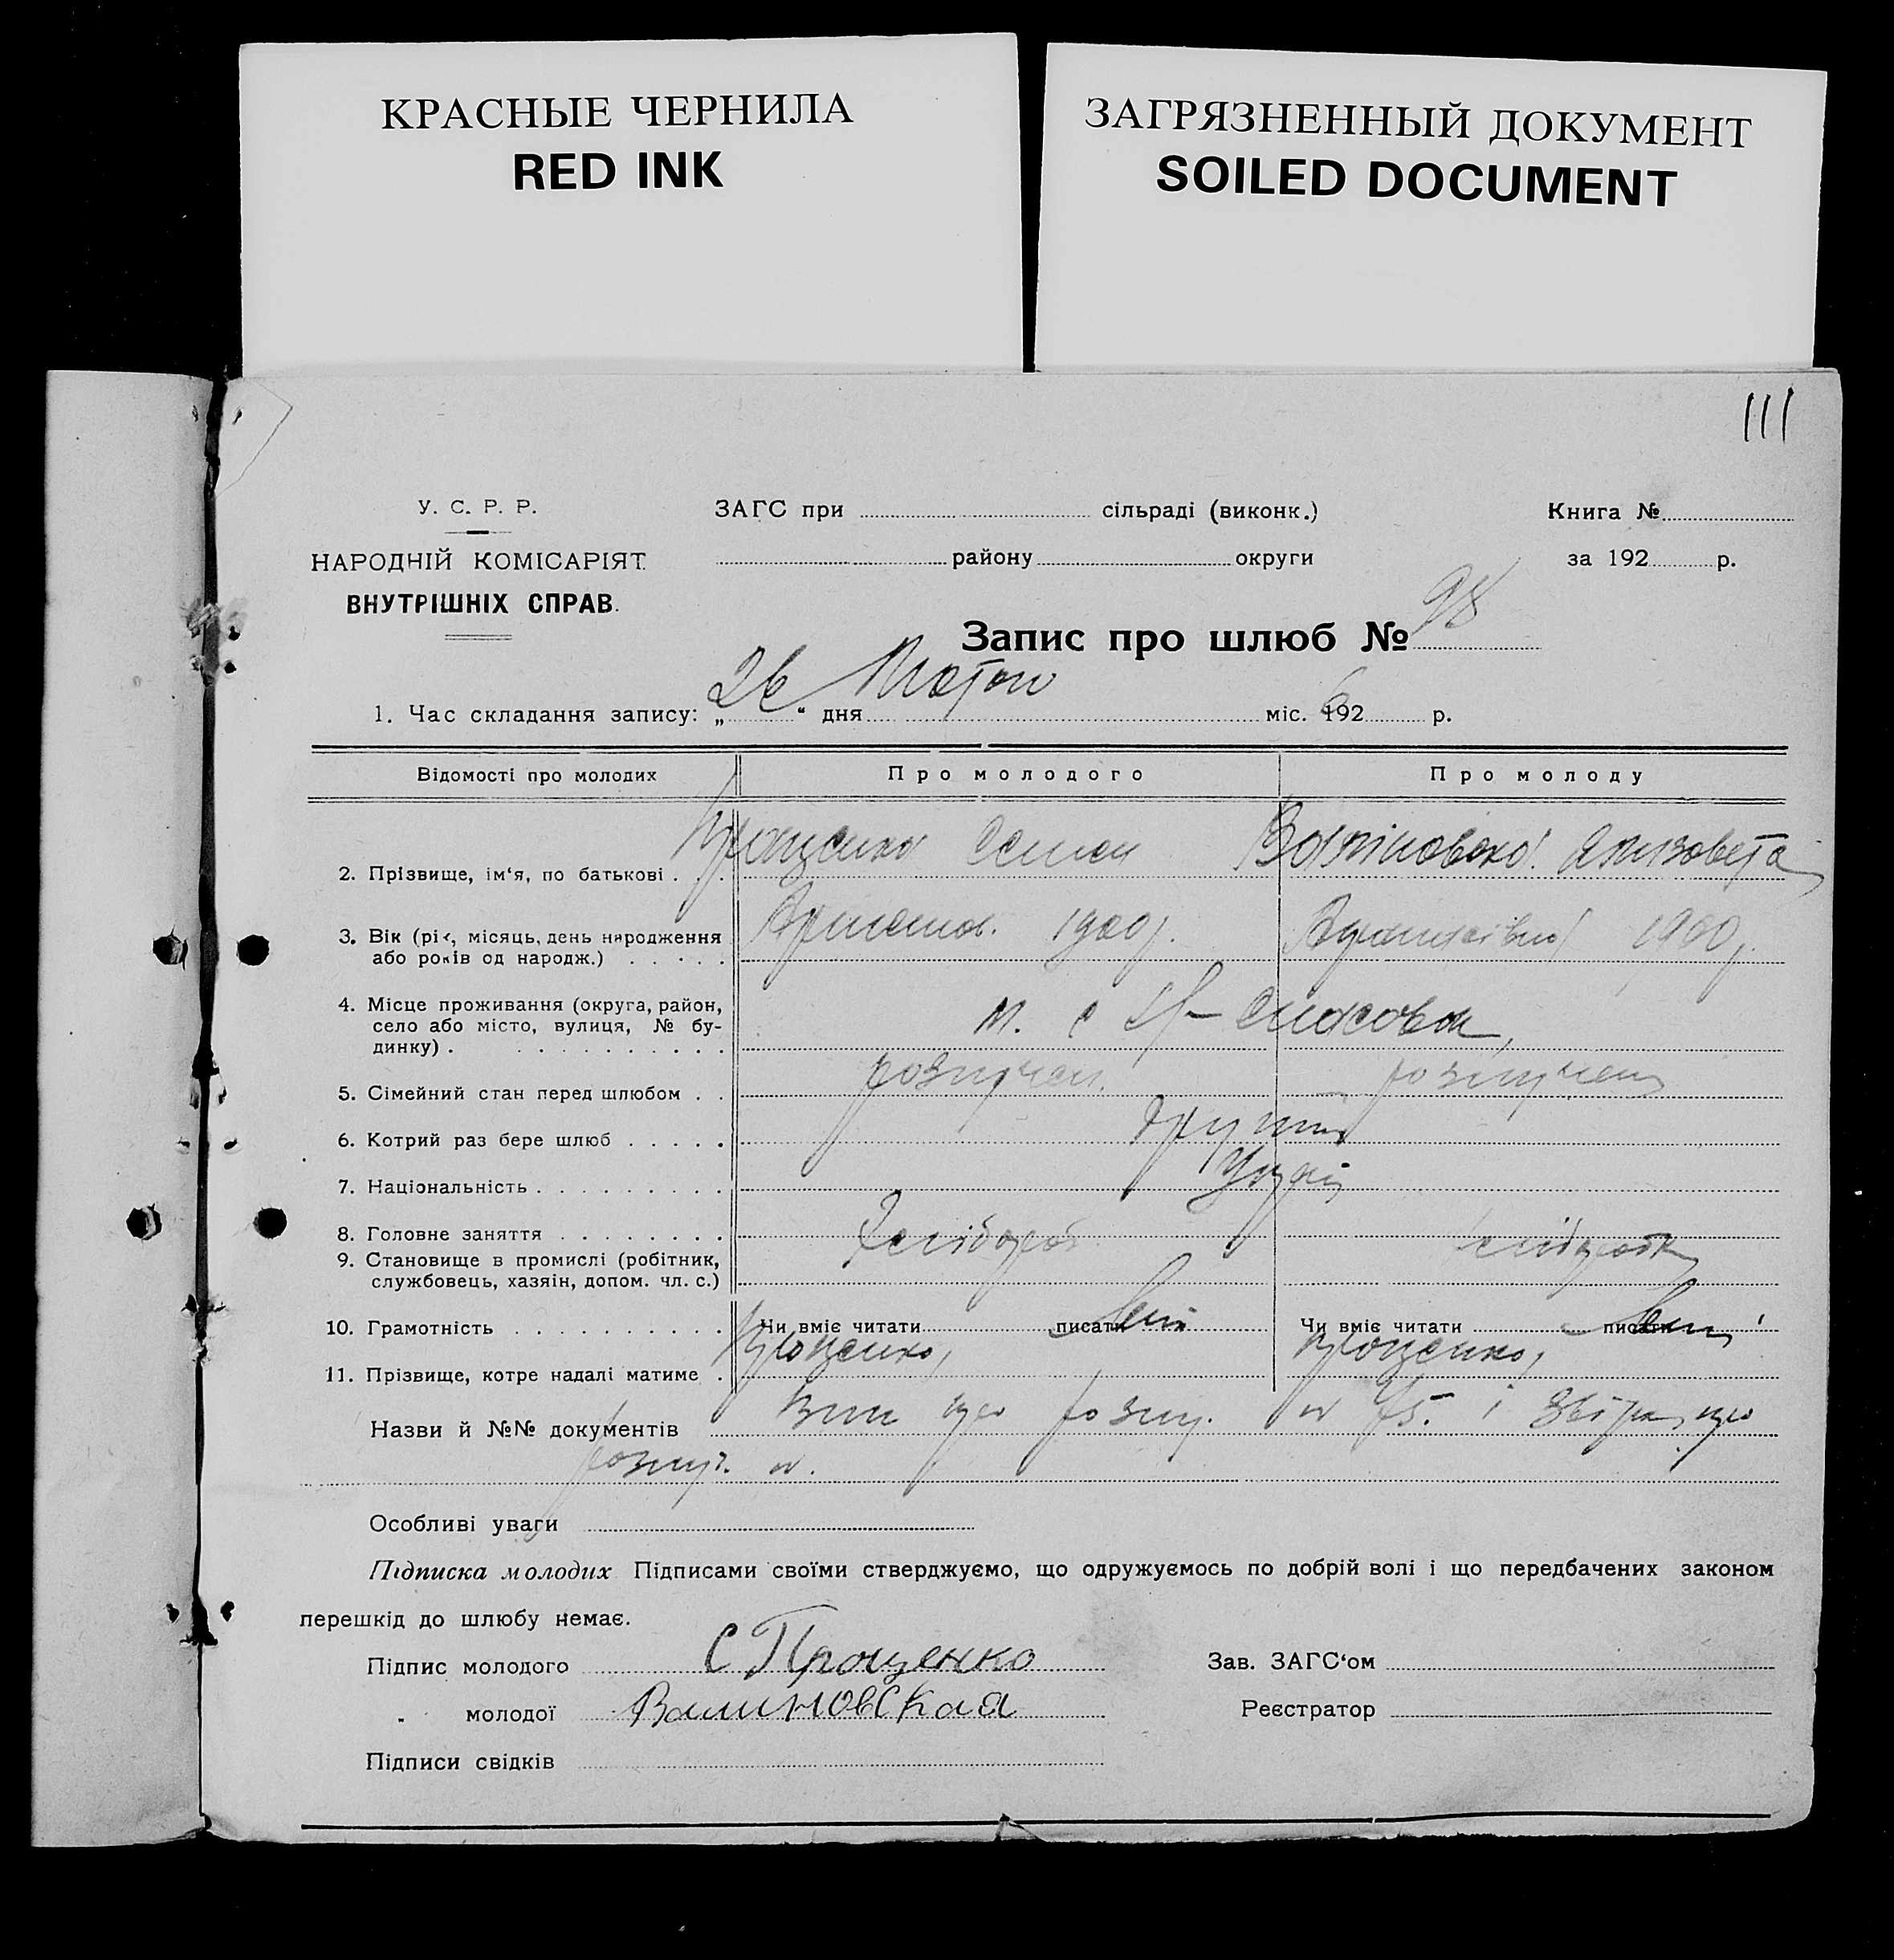 КРАСНЫЕ ЧЕРНИЛА
RED INK
ЗАГРЯЗНЕННЫЙ ДОКУМЕНТ
SOILED DOCUMENT
111
У. С. Р. Р.
НАРОДНІЙ КОМІСАРІЯТ
ВНУТРІШНІХ СПРАВ.
ЗАГС при сільраді (виконк.)
району округи
Книга №
за 192 р.
Запис про шлюб № 98
1. Час складання запису: „ 26 “ дня Лютого міс. 1926 р.
Відомості про молодих Про молодого Про молоду
2. Прізвище, ім‘я, по батькові . . . Проценко Семен Єлизовета
3. Вік (рік, місяць, день народження 1900р. 1900р.
або років од народж.) . . . . .
4. Місце проживання (округа, район,
село або місто, вулиця, № бу-
динку) . . . . . . . . . . . м. с
5. Сімейний стан перед шлюбом . . розлучен. розлучена
6. Котрий раз бере шлюб . . . . . другий
7. Національність . . . . . . . . .
8. Головне заняття . . . . . . . .
9. Становище в промислі (робітник,
службовець, хазяін, допом. чл. с.)
10. Грамотність . . . . . . . . . . Чи вміє читати писати Чи вміє читати писати
11. Прізвище, котре надалі матиме . Проценко, Проценко,
Назви й №№ документів що розлу. і що
розлуч.
Особливі уваги
Підписка молодих Підписами своїми стверджуємо, що одружуємось по добрій волі і що передбачених законом
перешкід до шлюбу немає.
Підпис молодого С Проценко Зав. ЗАГС‘ом
молодої Валиновская Реєстратор
Підписи свідків